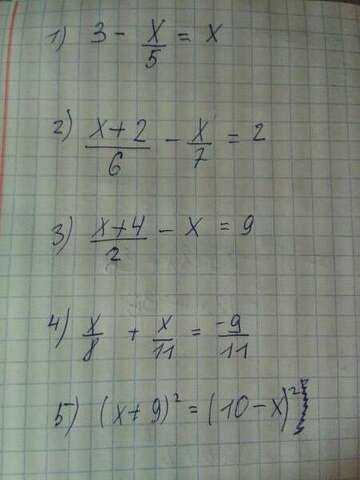 1) 3 - x/5 = x
2) (x+2)/6 - x/7 = 2
3) (x+4)/2 - x = 9
4) x/8 + x/11 = -9/11
5) (x+9)² = (10-x)²